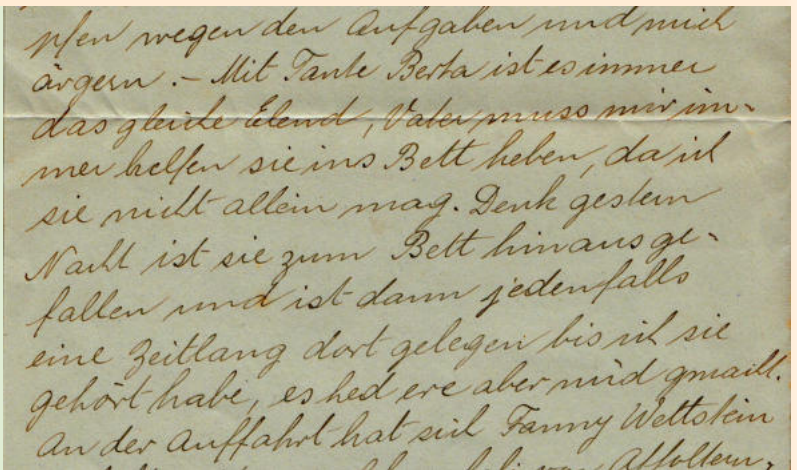 pfen wegen den Aufgaben und mich
ärgern. – Mit Tante Berta ist es immer
das gleiche Elend, Vater muss mir im-
mer helfen sie ins Bett heben, da ich
sie nicht allein mag. Denk gestern
Nacht ist sie zum Bett hinausge-
fallen und ist dann jedenfalls
eine Zeitlang dort gelegen bis ich sie
gehört habe, es hed ere aber nüd gmacht.
An der Auffahrt hat sich Fanny Wettstein
von Affoltern